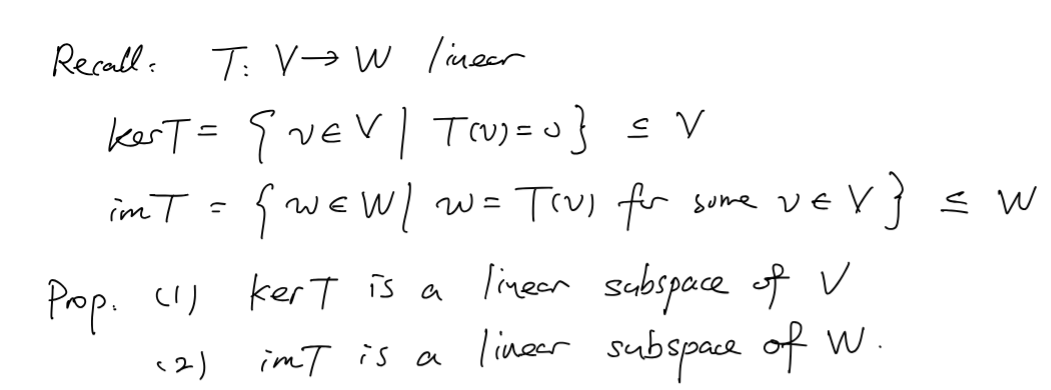 Recall: T: V → W linear
ker T = { v ∈ V | T(v) = 0 } ≤ V
im T = { w ∈ W | w = T(v) for some v ∈ V } ≤ W
Prop. (1) ker T is a linear subspace of V
(2) im T is a linear subspace of W.